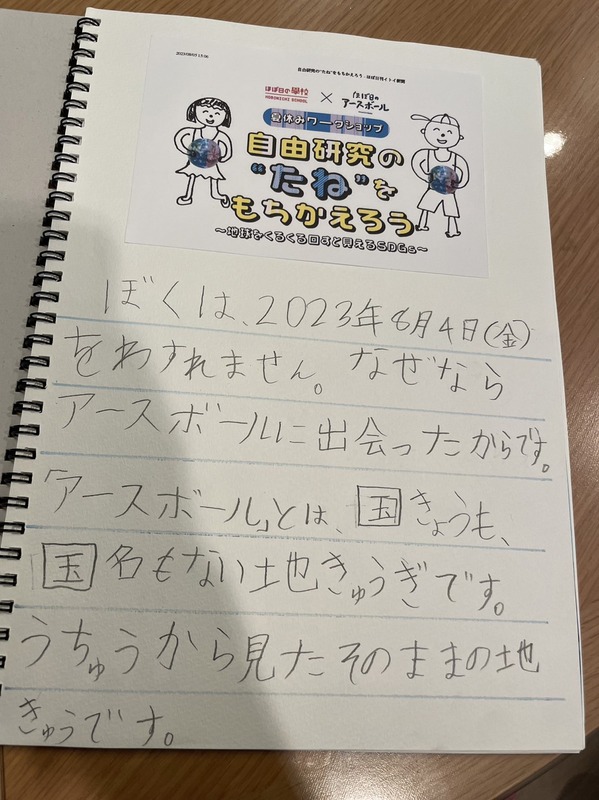 2023/08/03 13:56
自由研究の"たね"をもちかえろう - ほぼ日刊イトイ新聞
ほぼ日の學校 × ほぼ日のアースボール
HOBONICHI SCHOOL
夏休みワークショップ
自由研究の
"たね"を
もちかえろう
～地球をくるくる回すと見えるSDGs～
ぼくは、2023年8月4日(金)
をわすれません。なぜなら
アースボールに出会ったからです。
「アースボール」とは、国きょうも、
国名もない地きゅうぎです。
うちゅうから見たそのままの地
きゅうです。